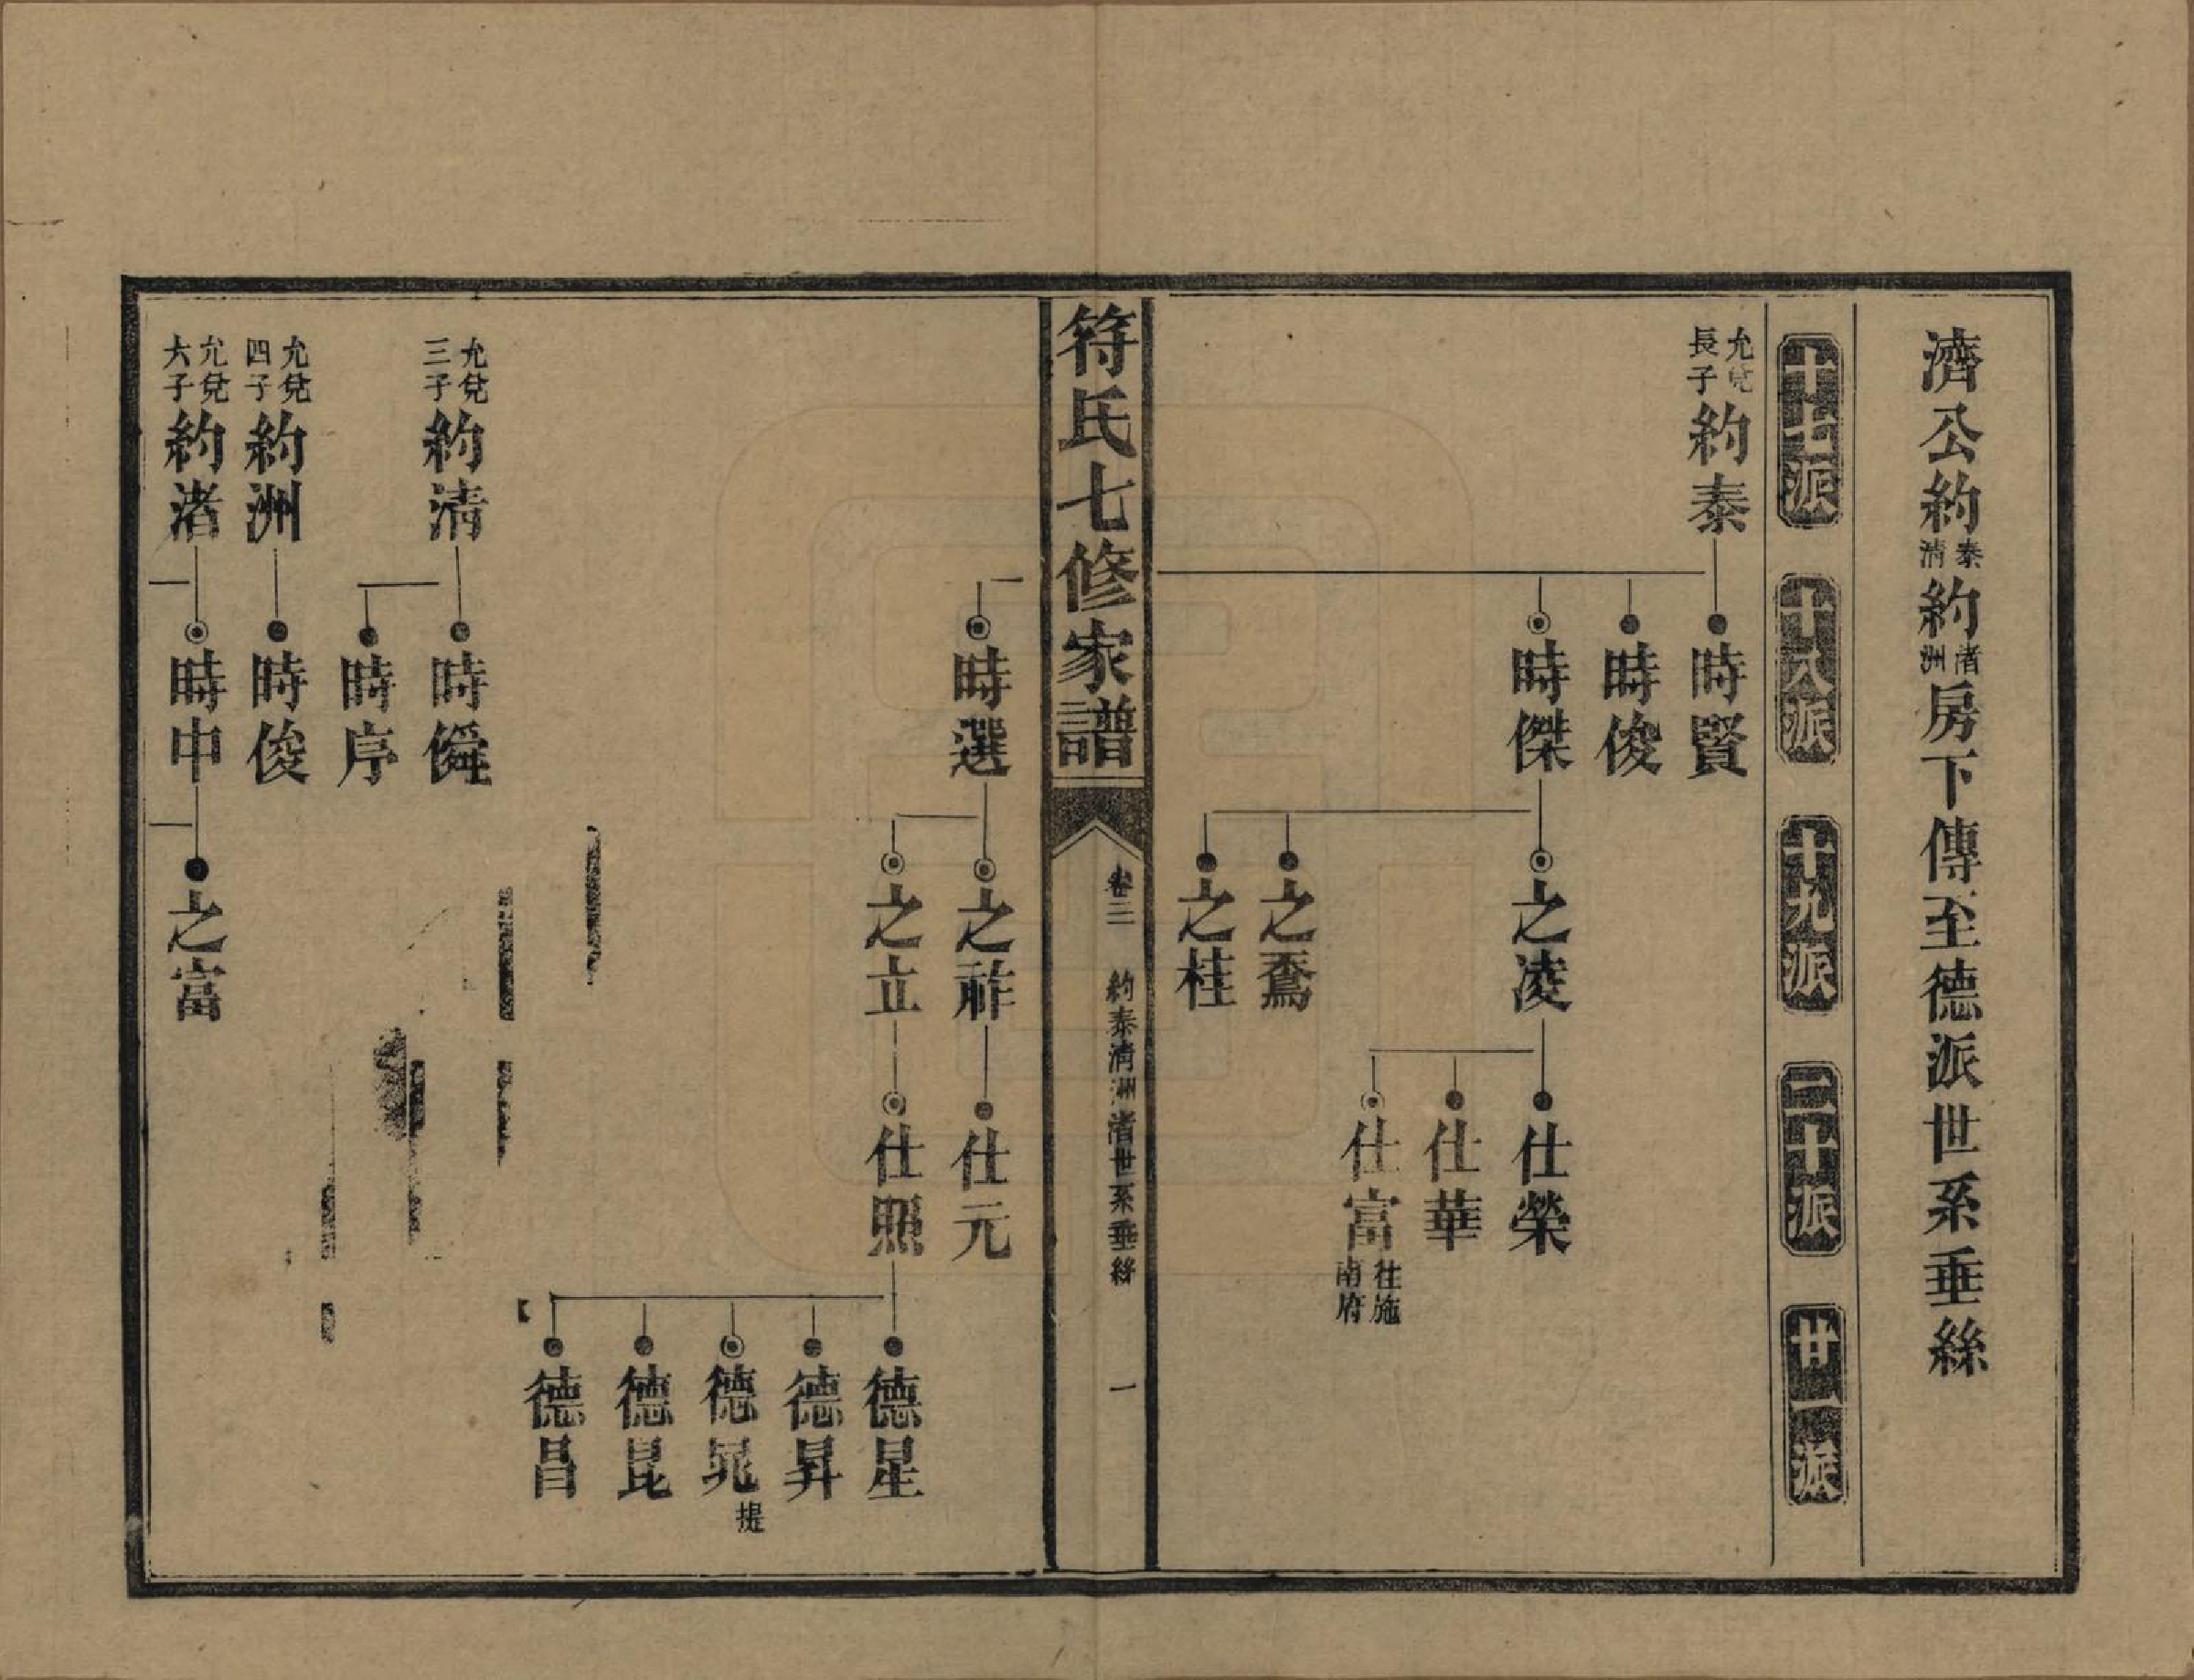 濟公約泰清約渚洲房下傳至德派世系垂絲
十七派
十八派
十九派
二十派
廿一派
允兌長子約泰
時賢
時俊
時傑
之凌
仕榮
仕華
仕富往施南府
之鴌
之桂
符氏七修家譜
卷二 約泰清洲渚世系垂絲 一
時選
之祚
仕元
之立
仕照
德星
德昇
德晃提
德昆
德昌
允兌三子約清
時舜
時序
允兌四子約洲
時俊
允兌六子約渚
時中
之富